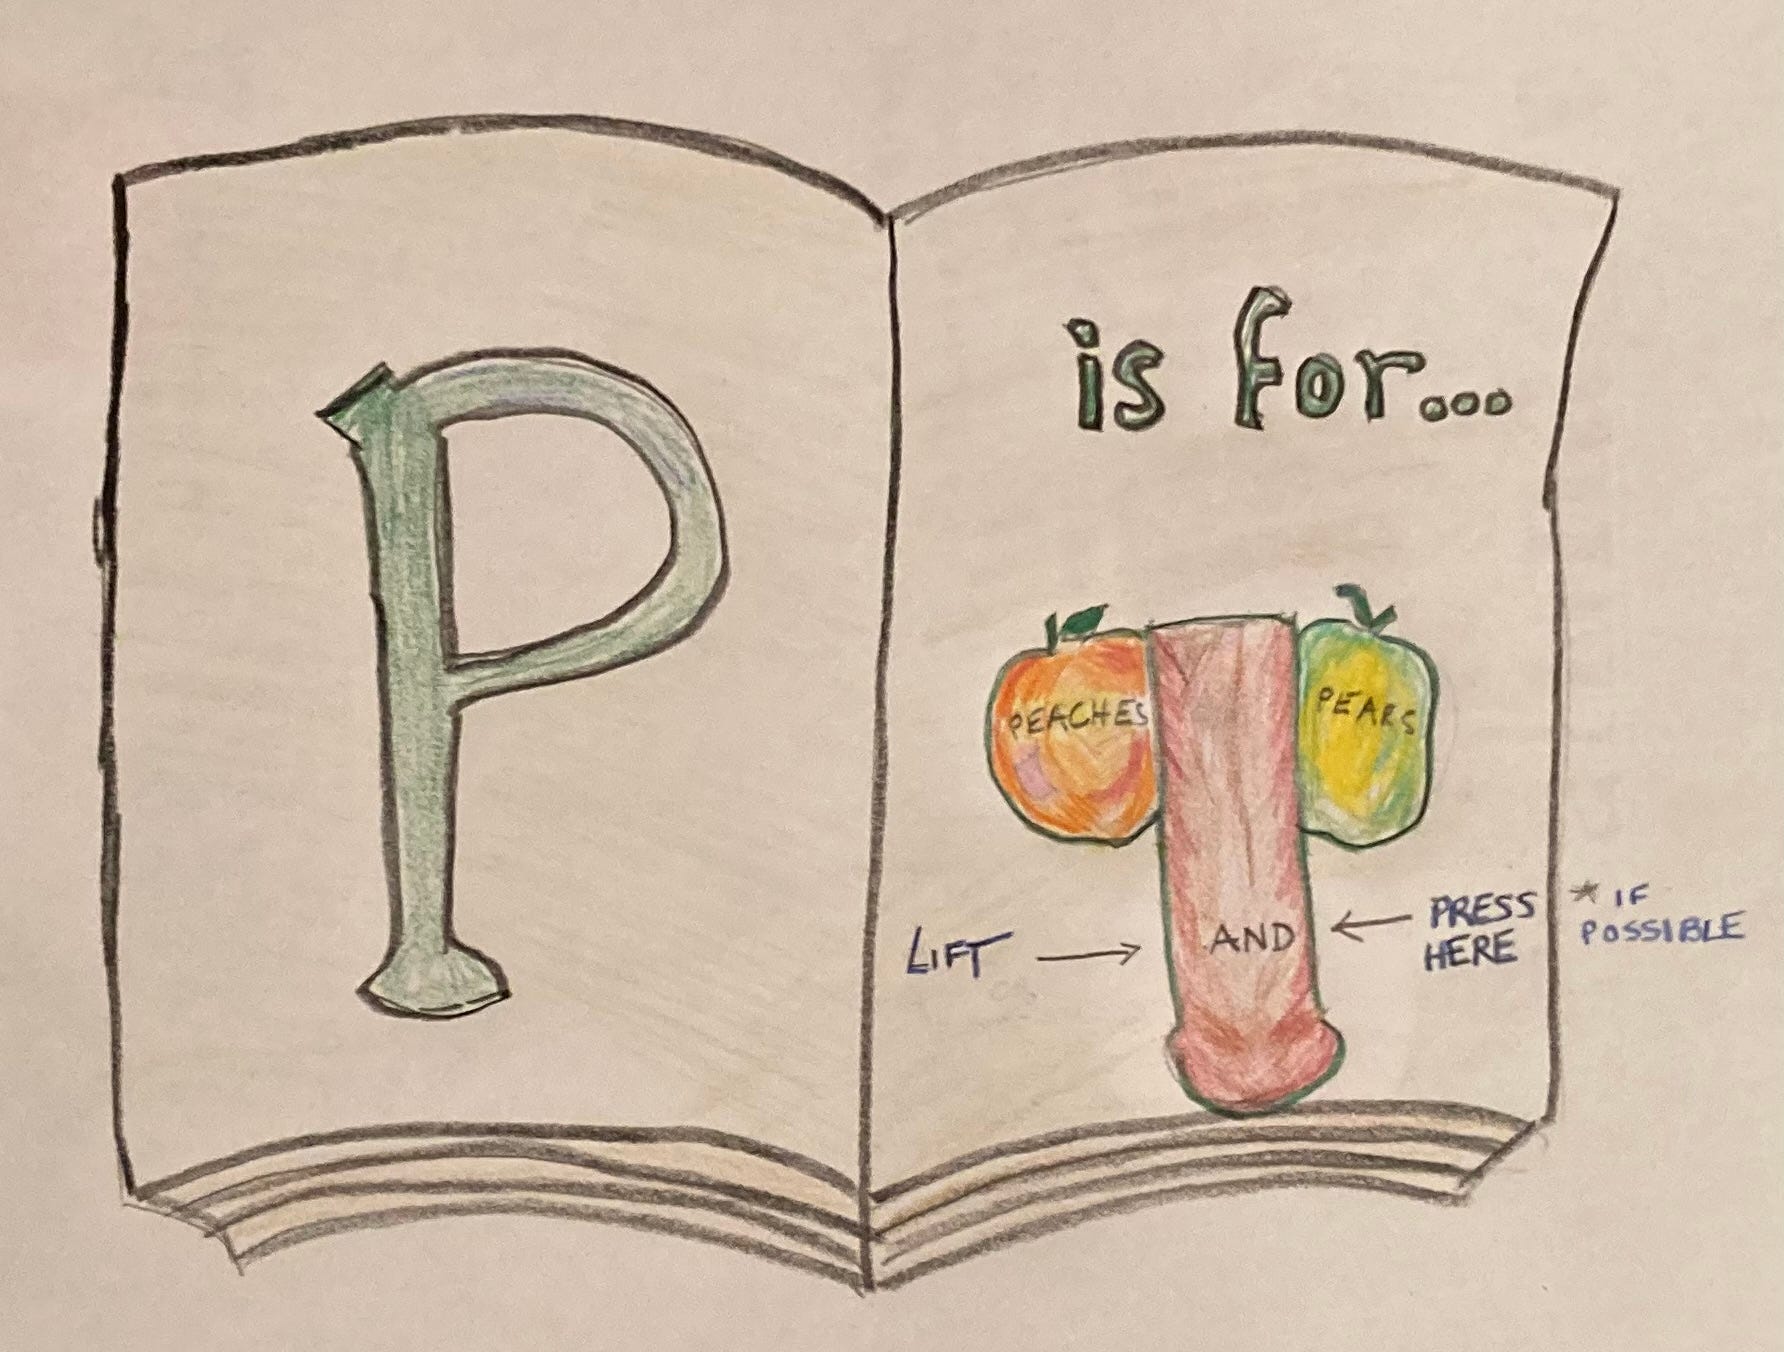 P
is for...
PEACHES
PEARS
AND
LIFT
PRESS
HERE
* IF
POSSIBLE